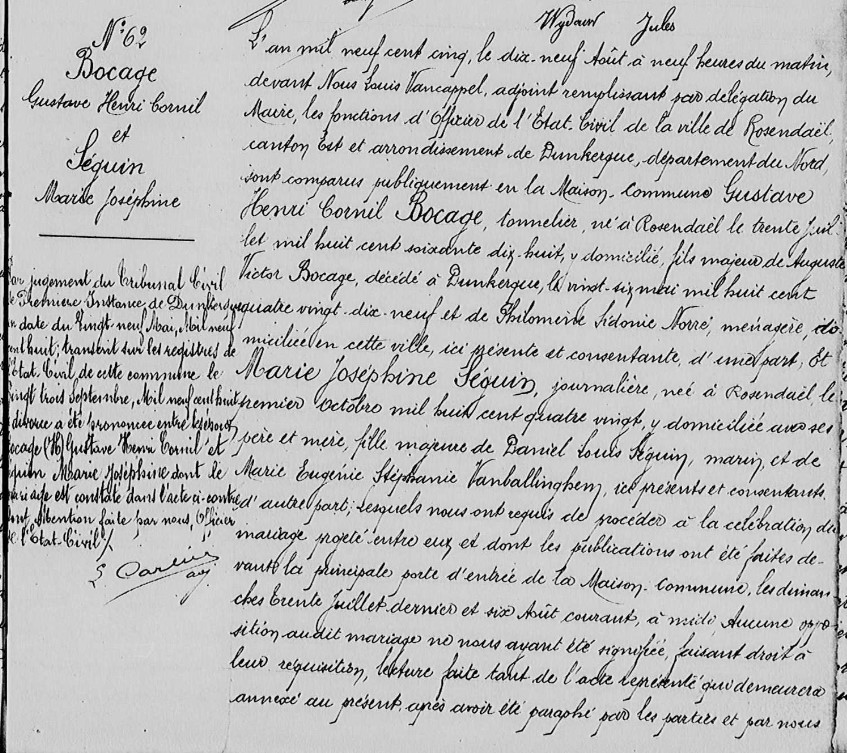 Wydauw Jules
N° 62
Bocage
Gustave Henri Cornil
et
Séguin
Marie Joséphine
Par jugement du Tribunal Civil
de Première Instance de Dunkerque
en date du Vingt-neuf Mai, Mil neuf
cent huit, transcrit sur les registres de
l'Etat-Civil de cette commune le
Vingt trois Septembre, Mil neuf cent huit
le divorce a été prononcé entre les époux
Bocage (H) Gustave Henri Cornil et
Séguin Marie Joséphine dont le
mariage est constaté dans l'acte ci-contre
Dont Mention faite par nous, Officier
de l'Etat-Civil
L'an mil neuf cent cinq, le dix-neuf Août à neuf heures du matin,
devant Nous Louis Vancappel, adjoint remplissant par délégation du
Maire, les fonctions d'Officier de l'Etat-Civil de la ville de Rosendaël,
canton Est et arrondissement de Dunkerque, département du Nord,
sont comparus publiquement en la Maison-Commune Gustave
Henri Cornil Bocage, tonnelier, né à Rosendaël le trente Juil-
let mil huit cent soixante dix-huit, y domicilié, fils majeur de Auguste
Victor Bocage, décédé à Dunkerque, le vingt-six mai mil huit cent
quatre vingt-dix-neuf et de Philomène Sidonie Norré, ménagère, do-
miciliée en cette ville, ici présente et consentante, d'une part, Et
Marie Joséphine Séguin, journalière, née à Rosendaël, le
premier Octobre mil huit cent quatre vingt, y domiciliée avec ses
père et mère, fille majeure de Daniel Louis Séguin, marin, et de
Marie Eugénie Stéphanie Vanballinghem, ici présents et consentants,
d'autre part; lesquels nous ont requis de procéder à la célébration du
mariage projeté entre eux et dont les publications ont été faites de-
vant la principale porte d'entrée de la Maison-Commune, les diman-
ches trente Juillet dernier et six Août courant, à midi. Aucune oppo-
sition audit mariage ne nous ayant été signifiée, faisant droit à
leur réquisition, lecture faite tant de l'acte représenté qui demeurera
annexé au présent, après avoir été paraphé par les parties et par nous